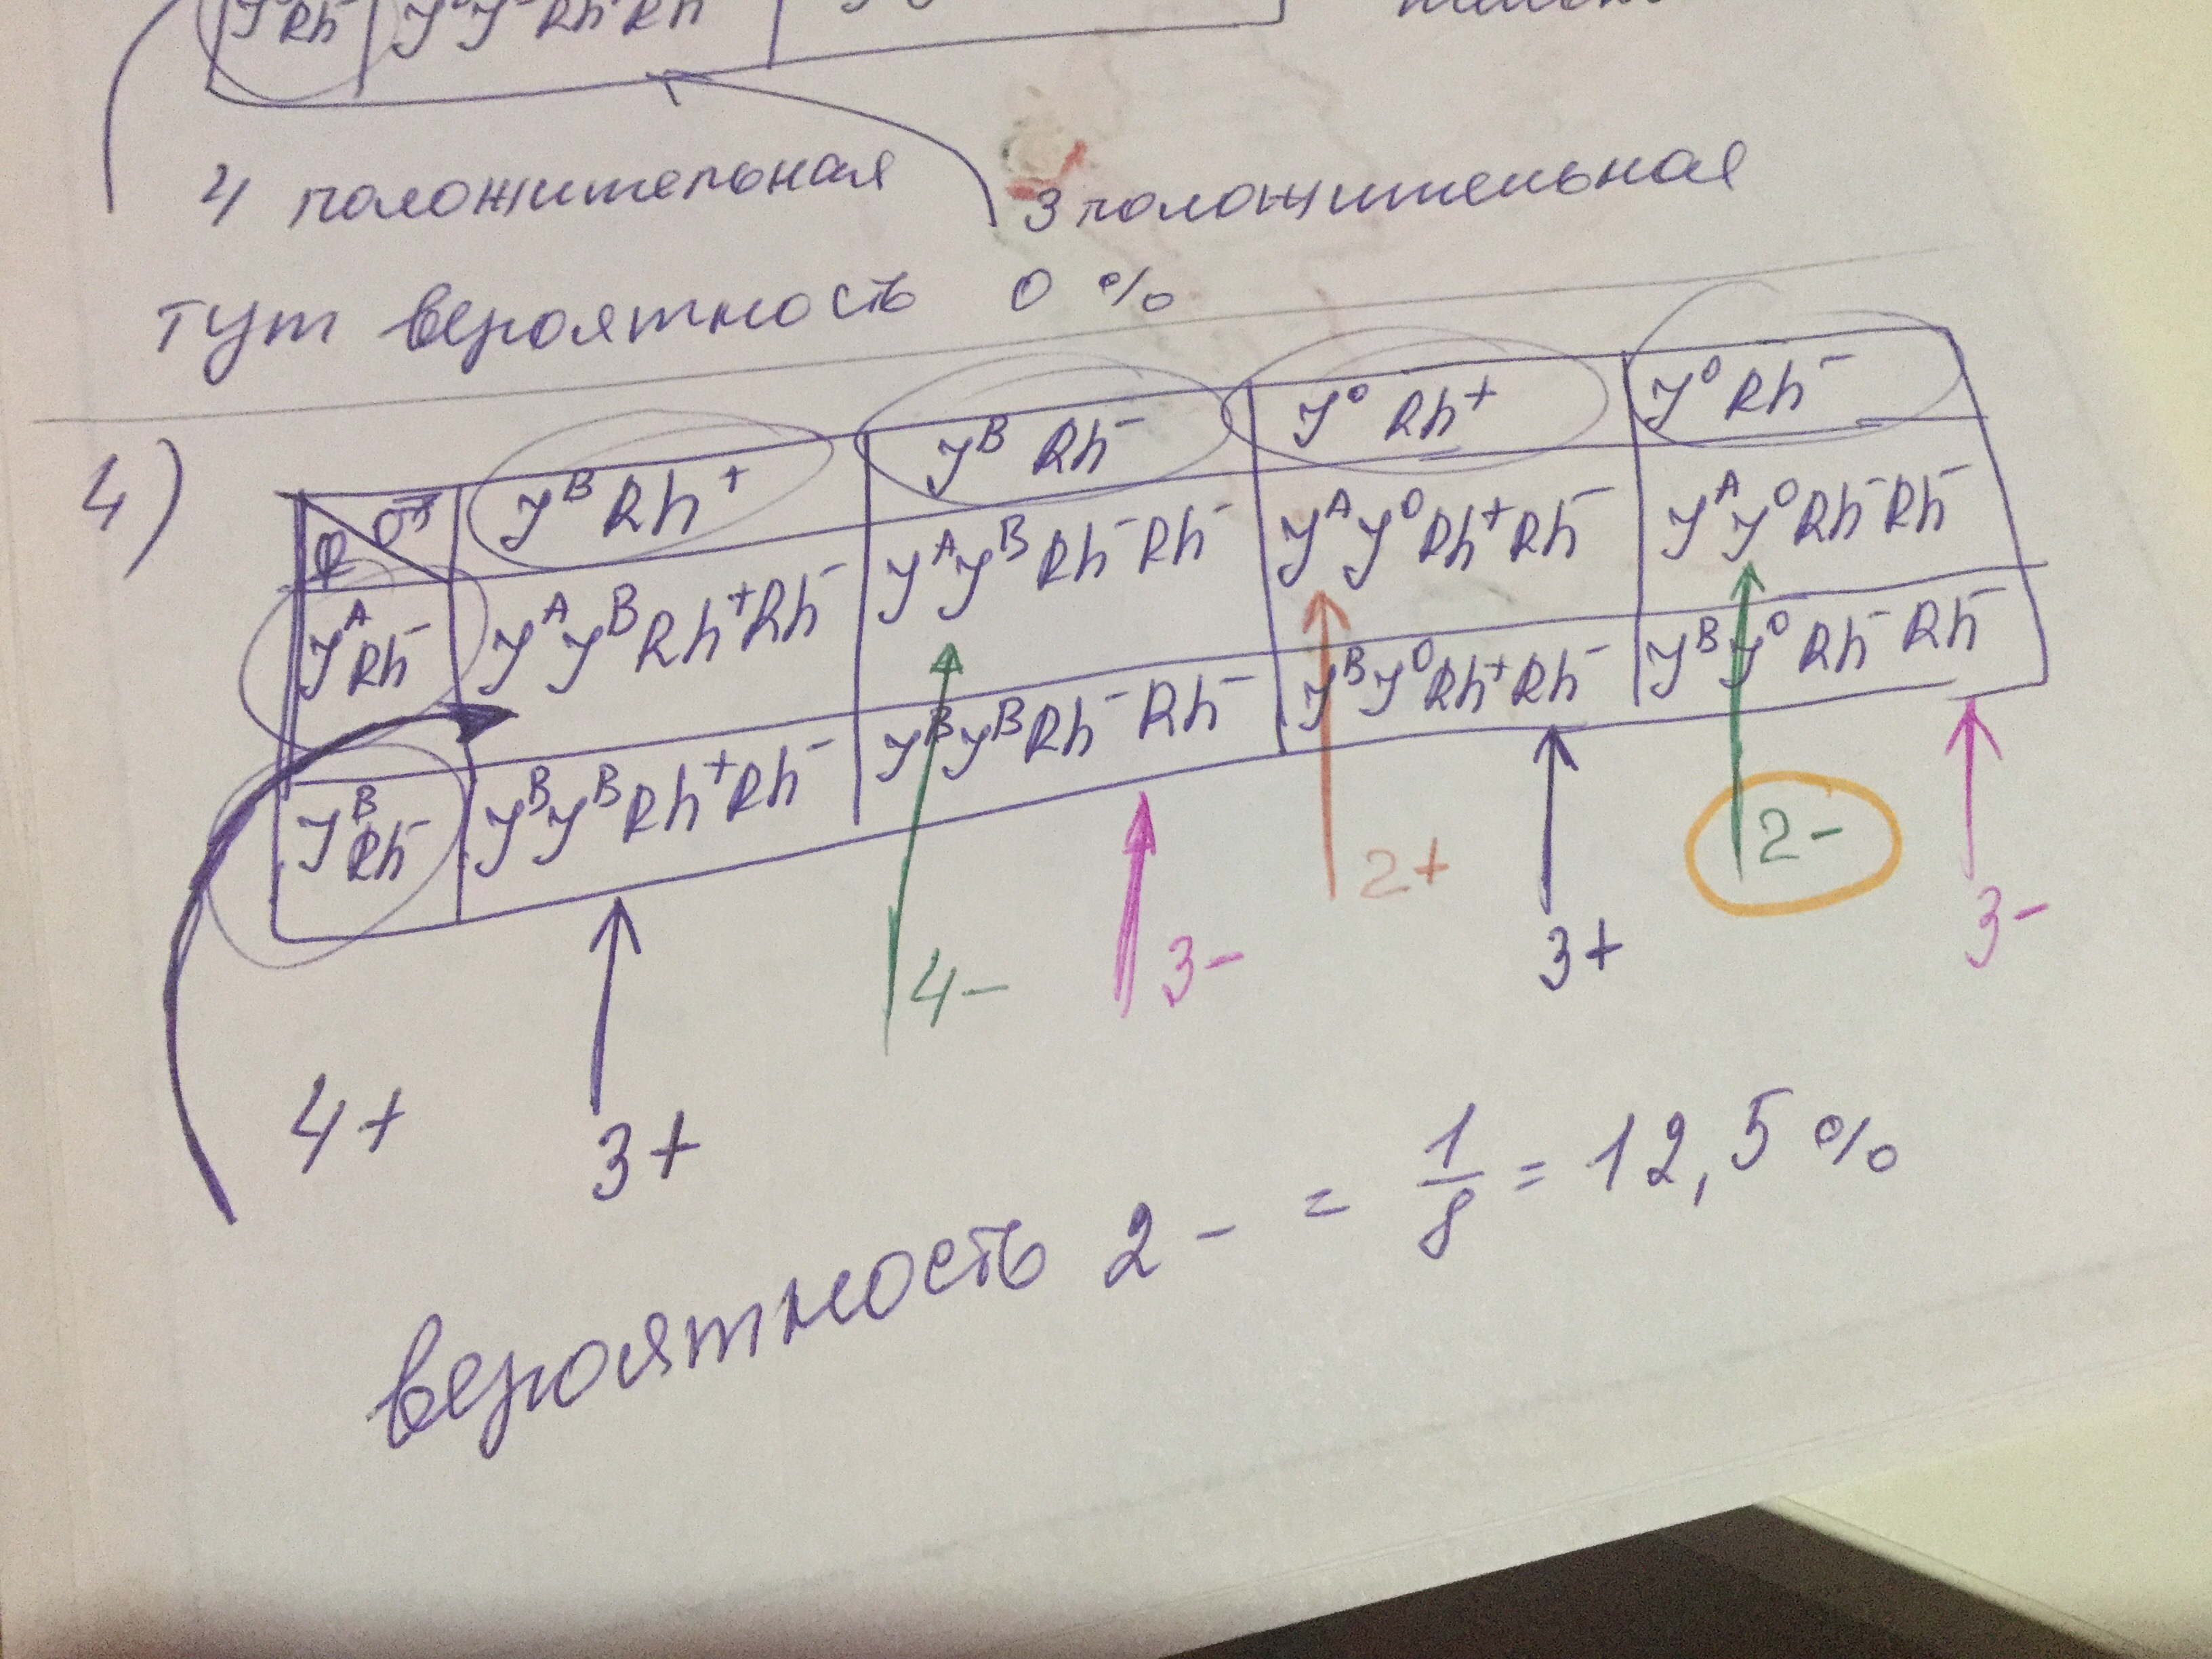 4 положительная 3 положительная
тут вероятность 0 %
4)
♀ ♂ JᴮRh⁺ Jᴮ Rh⁻ J⁰ Rh⁺ J⁰ Rh⁻
Jᴬ Rh⁻ JᴬJᴮRh⁺Rh⁻ JᴬJᴮRh⁻Rh⁻ JᴬJ⁰Rh⁺Rh⁻ JᴬJ⁰Rh⁻Rh⁻
Jᴮ Rh⁻ JᴮJᴮRh⁺Rh⁻ JᴮJᴮRh⁻Rh⁻ JᴮJ⁰Rh⁺Rh⁻ JᴮJ⁰Rh⁻Rh⁻
4+ 3+ 4- 3- 2+ 3+ 2- 3-
вероятность 2 - = 1/8 = 12,5 %